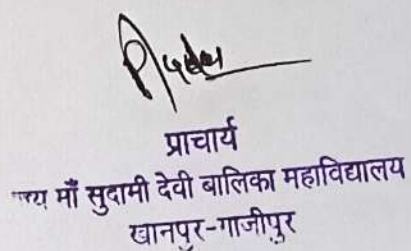 प्राचार्य
माँ सुदामी देवी बालिका महाविद्यालय
खानपुर-गाजीपुर